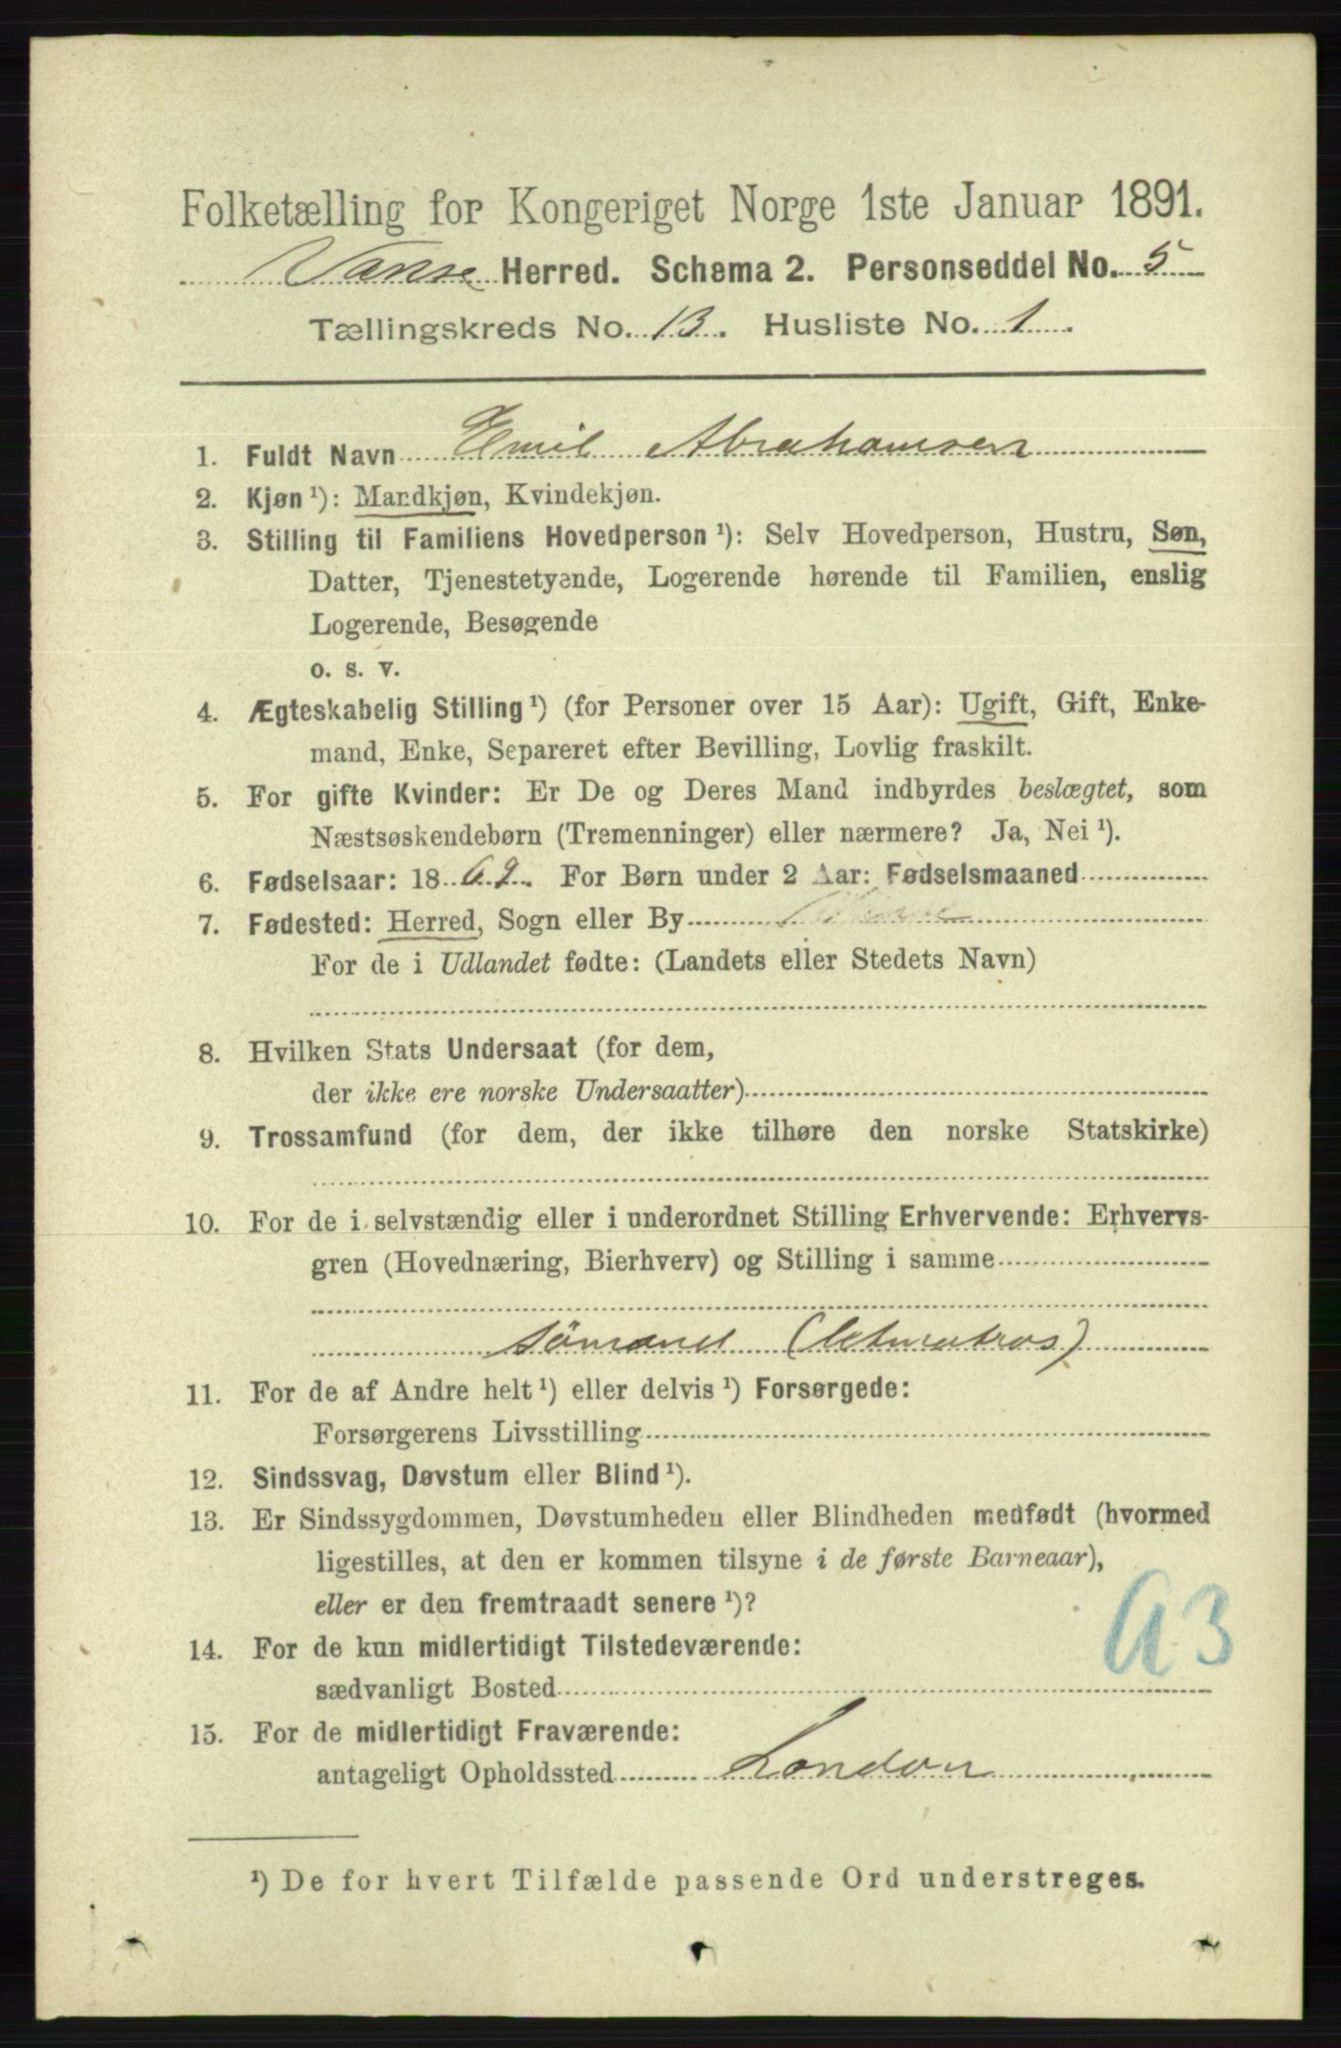 Folketælling for Kongeriget Norge 1ste Januar 1891.
Vanse Herred. Schema 2. Personseddel No. 5
Tællingskreds No. 13. Husliste No. 1.
1. Fuldt Navn Emil Abrahamsen
2. Kjøn ¹): Mandkjøn, Kvindekjøn.
3. Stilling til Familiens Hovedperson ¹): Selv Hovedperson, Hustru, Søn,
Datter, Tjenestetyende, Logerende hørende til Familien, enslig
Logerende, Besøgende
o. s. v.
4. Ægteskabelig Stilling ¹) (for Personer over 15 Aar): Ugift, Gift, Enke-
mand, Enke, Separeret efter Bevilling, Lovlig fraskilt.
5. For gifte Kvinder: Er De og Deres Mand indbyrdes beslægtet, som
Næstsøskendebørn (Tremenninger) eller nærmere? Ja, Nei ¹).
6. Fødselsaar: 1869. For Børn under 2 Aar: Fødselsmaaned
7. Fødested: Herred, Sogn eller By
For de i Udlandet fødte: (Landets eller Stedets Navn)
8. Hvilken Stats Undersaat (for dem,
der ikke ere norske Undersaatter)
9. Trossamfund (for dem, der ikke tilhøre den norske Statskirke)
10. For de i selvstændig eller i underordnet Stilling Erhvervende: Erhvervs-
gren (Hovednæring, Bierhverv) og Stilling i samme
sømand (letmatros)
11. For de af Andre helt ¹) eller delvis ¹) Forsørgede:
Forsørgerens Livsstilling
12. Sindssvag, Døvstum eller Blind ¹).
13. Er Sindssygdommen, Døvstumheden eller Blindheden medfødt (hvormed
ligestilles, at den er kommen tilsyne i de første Barneaar),
eller er den fremtraadt senere ¹)?
14. For de kun midlertidigt Tilstedeværende:
sædvanligt Bosted
15. For de midlertidigt Fraværende:
antageligt Opholdssted London
¹) De for hvert Tilfælde passende Ord understreges.